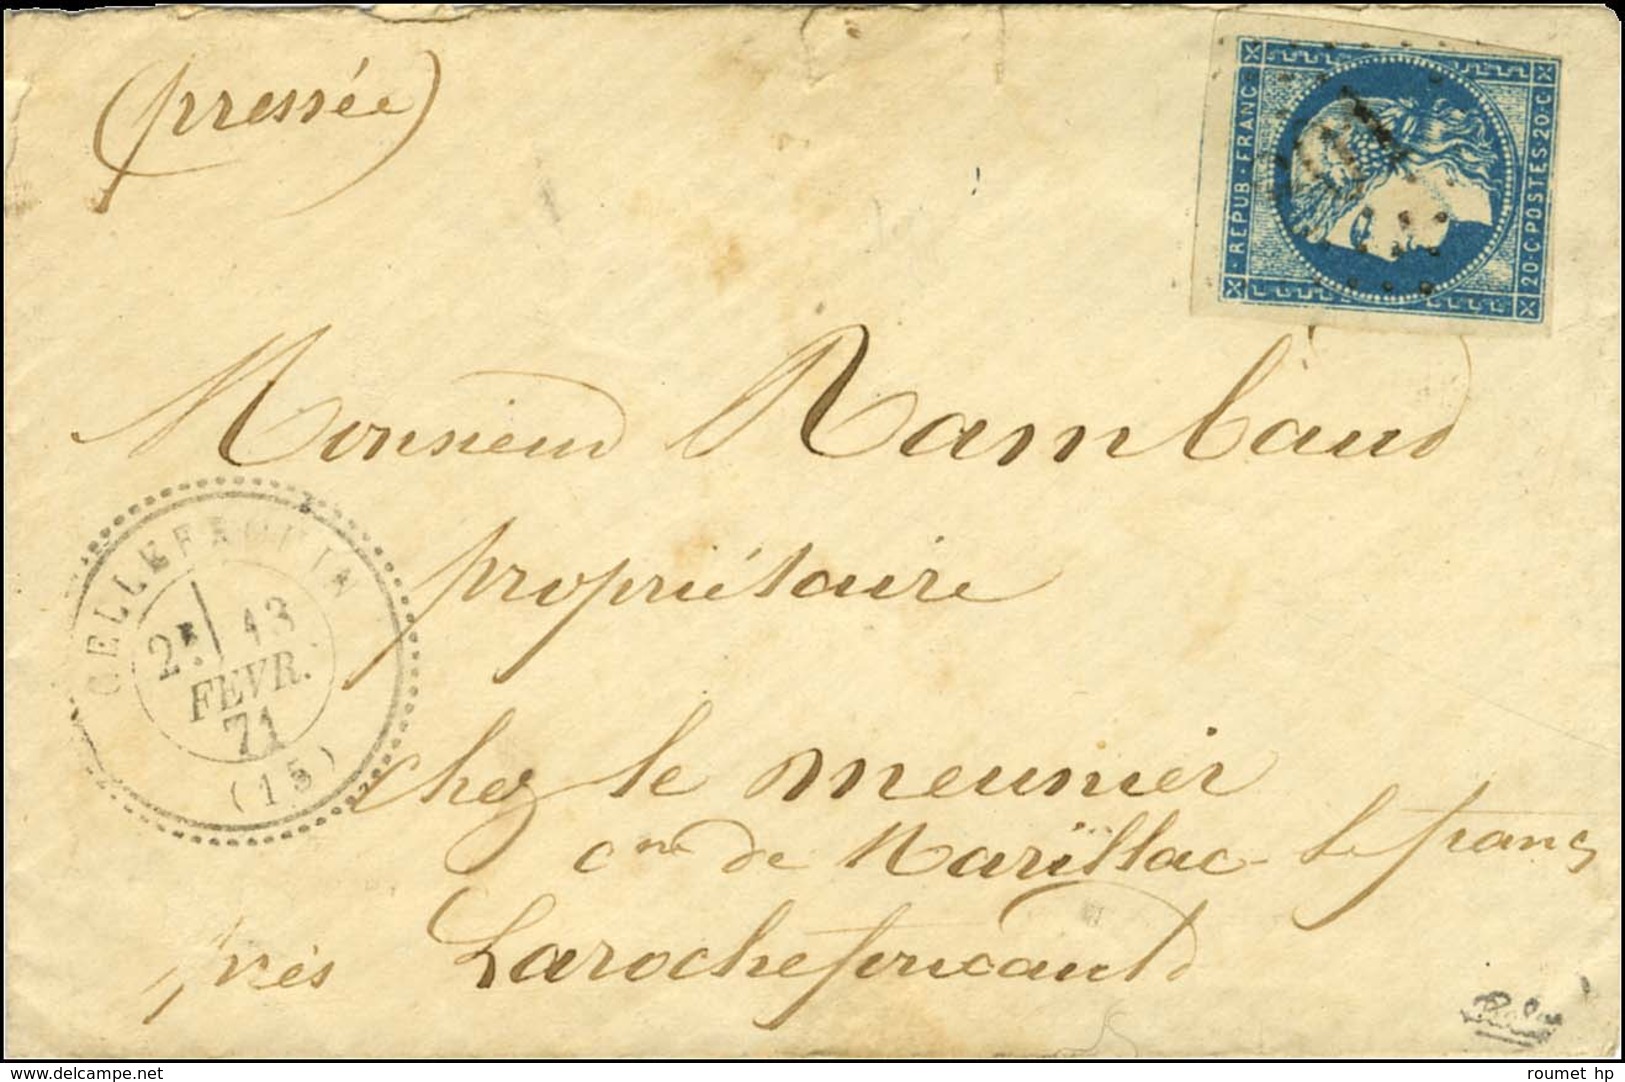 (pressée)
REPUB·FRANC·
20·C·POSTES·20·C·
Monsieur Rambaud
propriétaire
CELLEFROUIN
2E 13
FEVR.
71
(15)
chez le meunier
cne de Marillac-le franc
près Larochefoucauld
delcampe.net
roumet hp